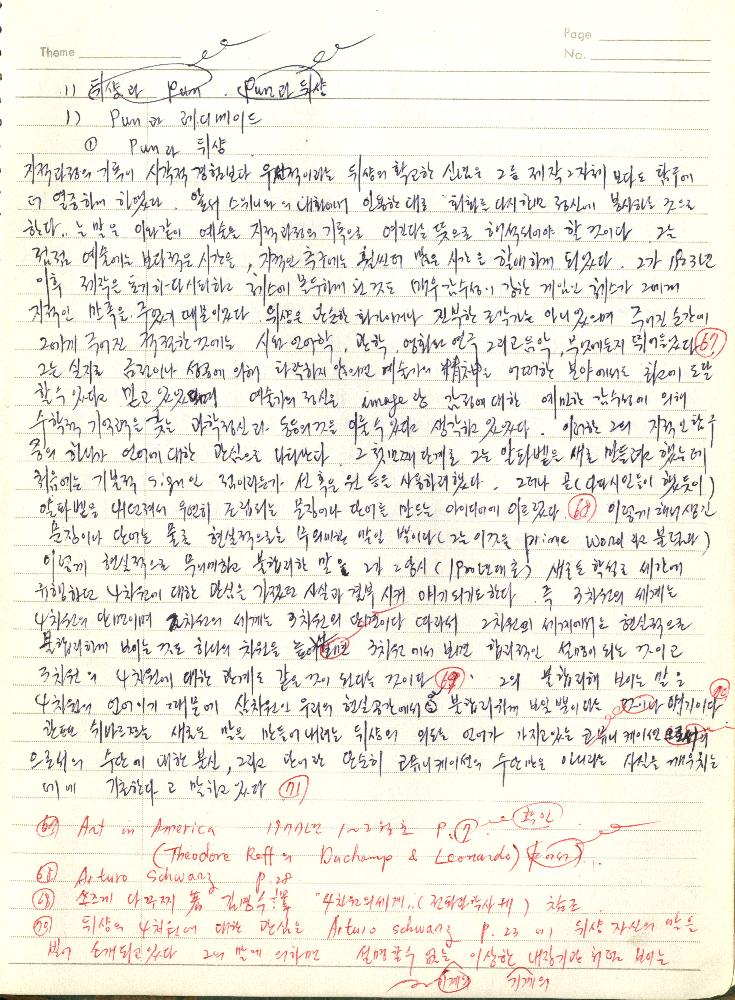 Theme
Page
No.
1) 뒤샹과 Pun. Pun과 뒤샹
1) Pun과 레디메이드
① Pun과 뒤샹
지적과정의 기록이 시각적 경험보다 우선적이라는 뒤샹의 확고한 신념은 그를 제작 그 자체 보다도 탐구에
더 열중하게 하였다. 앞서 스위니와의 대화에서 인용한대로 "회화를 다시한번 정신에 봉사하는 것으로
한다" 는 말은 이와같이 예술을 지적과정의 기록으로 여긴다는 뜻으로 해석되어야 할 것이다. 그는
점점 예술에는 보다 적은 시간을, 지적인 추구에는 훨씬더 많은 시간을 할애하게 되었다. 그가 1923년
이후 제작을 포기하다시피하고 체스에 몰두하게 된것도 매우 감수성이 강한 게임인 체스가 그에게
지적인 만족을 주었기 때문이었다. 뒤샹은 단순한 화가이거나 진부한 조각가는 아니었으며 주어진 순간에
그에게 주어진 적절한 것에는 시와 언어학, 과학, 영화와 연극 그리고 음악, 무엇에든지 뛰어들었다 67
그는 실지로 금전이나 성공에 의해 타락하지 않으면 예술가의 精神은 어떠한 분야에서도 최고에 도달
할수 있다고 믿고 있었으며 예술가의 정신은 image와 감정에 대한 예민한 감수성에 의해
수학적 기억력을 갖는 과학정신과 동등의 것을 이룰수 있다고 생각하고 있었다. 이러한 그의 지적인 탐구
중의 하나가 언어에 대한 관심으로 나타났다. 그 첫번째 단계로 그는 알파벨을 새로 만들려고 했는데
처음에는 기본적 sign인 점이라든가 선 혹은 원 등을 사용하려했다. 그러나 곧 (다다시인들이 했듯이)
알파벨을 내던져서 우연히 조립되는 문장이나 단어를 만드는 아이디어에 이르렀다. 68 이렇게 해서 생긴
문장이나 단어는 물론 현실적으로는 무의미한 말일 뿐이다 (그는 이것을 prime word 라고 불렀다)
이렇게 현실적으로 무의미하고 불합리한 말을 그가 그당시 (1910년대초) 새로운 학설로 세간에
유행하던 4차원에 대한 관심을 가졌던 사실과 결부 시켜 얘기되기도한다. 즉 3차원의 세계는
4차원의 단면이며 2차원의 세계는 3차원의 단면이다 따라서 2차원의 세계에서는 현실적으로
불합리하게 보이는 것도 하나의 차원을 늘려 3차원에서 보면 합리적인 설명이 되는 것이고
3차원의 4차원에 대한 관계도 같은 것이 된다는 것이다 69. 그의 불합리해 보이는 말을
4차원의 언어이기 때문에 삼차원인 우리의 현실공간에서는 불합리하게 보일 뿐이라는 얘기이다 70
관련 쉬바르쯔는 새로운 말을 만들어내려는 뒤샹의 의도는 언어가 가지고있는 코뮤니케이션
으로서의 수단에 대한 불신, 그리고 단어란 단순히 코뮤니케이션의 수단만은 아니라는 사실을 깨우치는
데에 기초한다고 말하고 있다 71
67 Art in America 1977년 1~2월호 P. 확인
(Theodore Reff의 Duchamp & Leonardo)
68 Arturo Schwarz p.28
69 쓰즈께 다꾸찌 著 김명수 譯 "4차원의세계" (전파과학사 刊) 참조
70 뒤샹의 4차원에 대한 관심은 Arturo schwarz p.23 에 뒤샹 자신의 말을
빌어 소개되고있다 그의 말에 의하면 설명할수 없는 이상한 내장기관 처럼 보이는
기계의